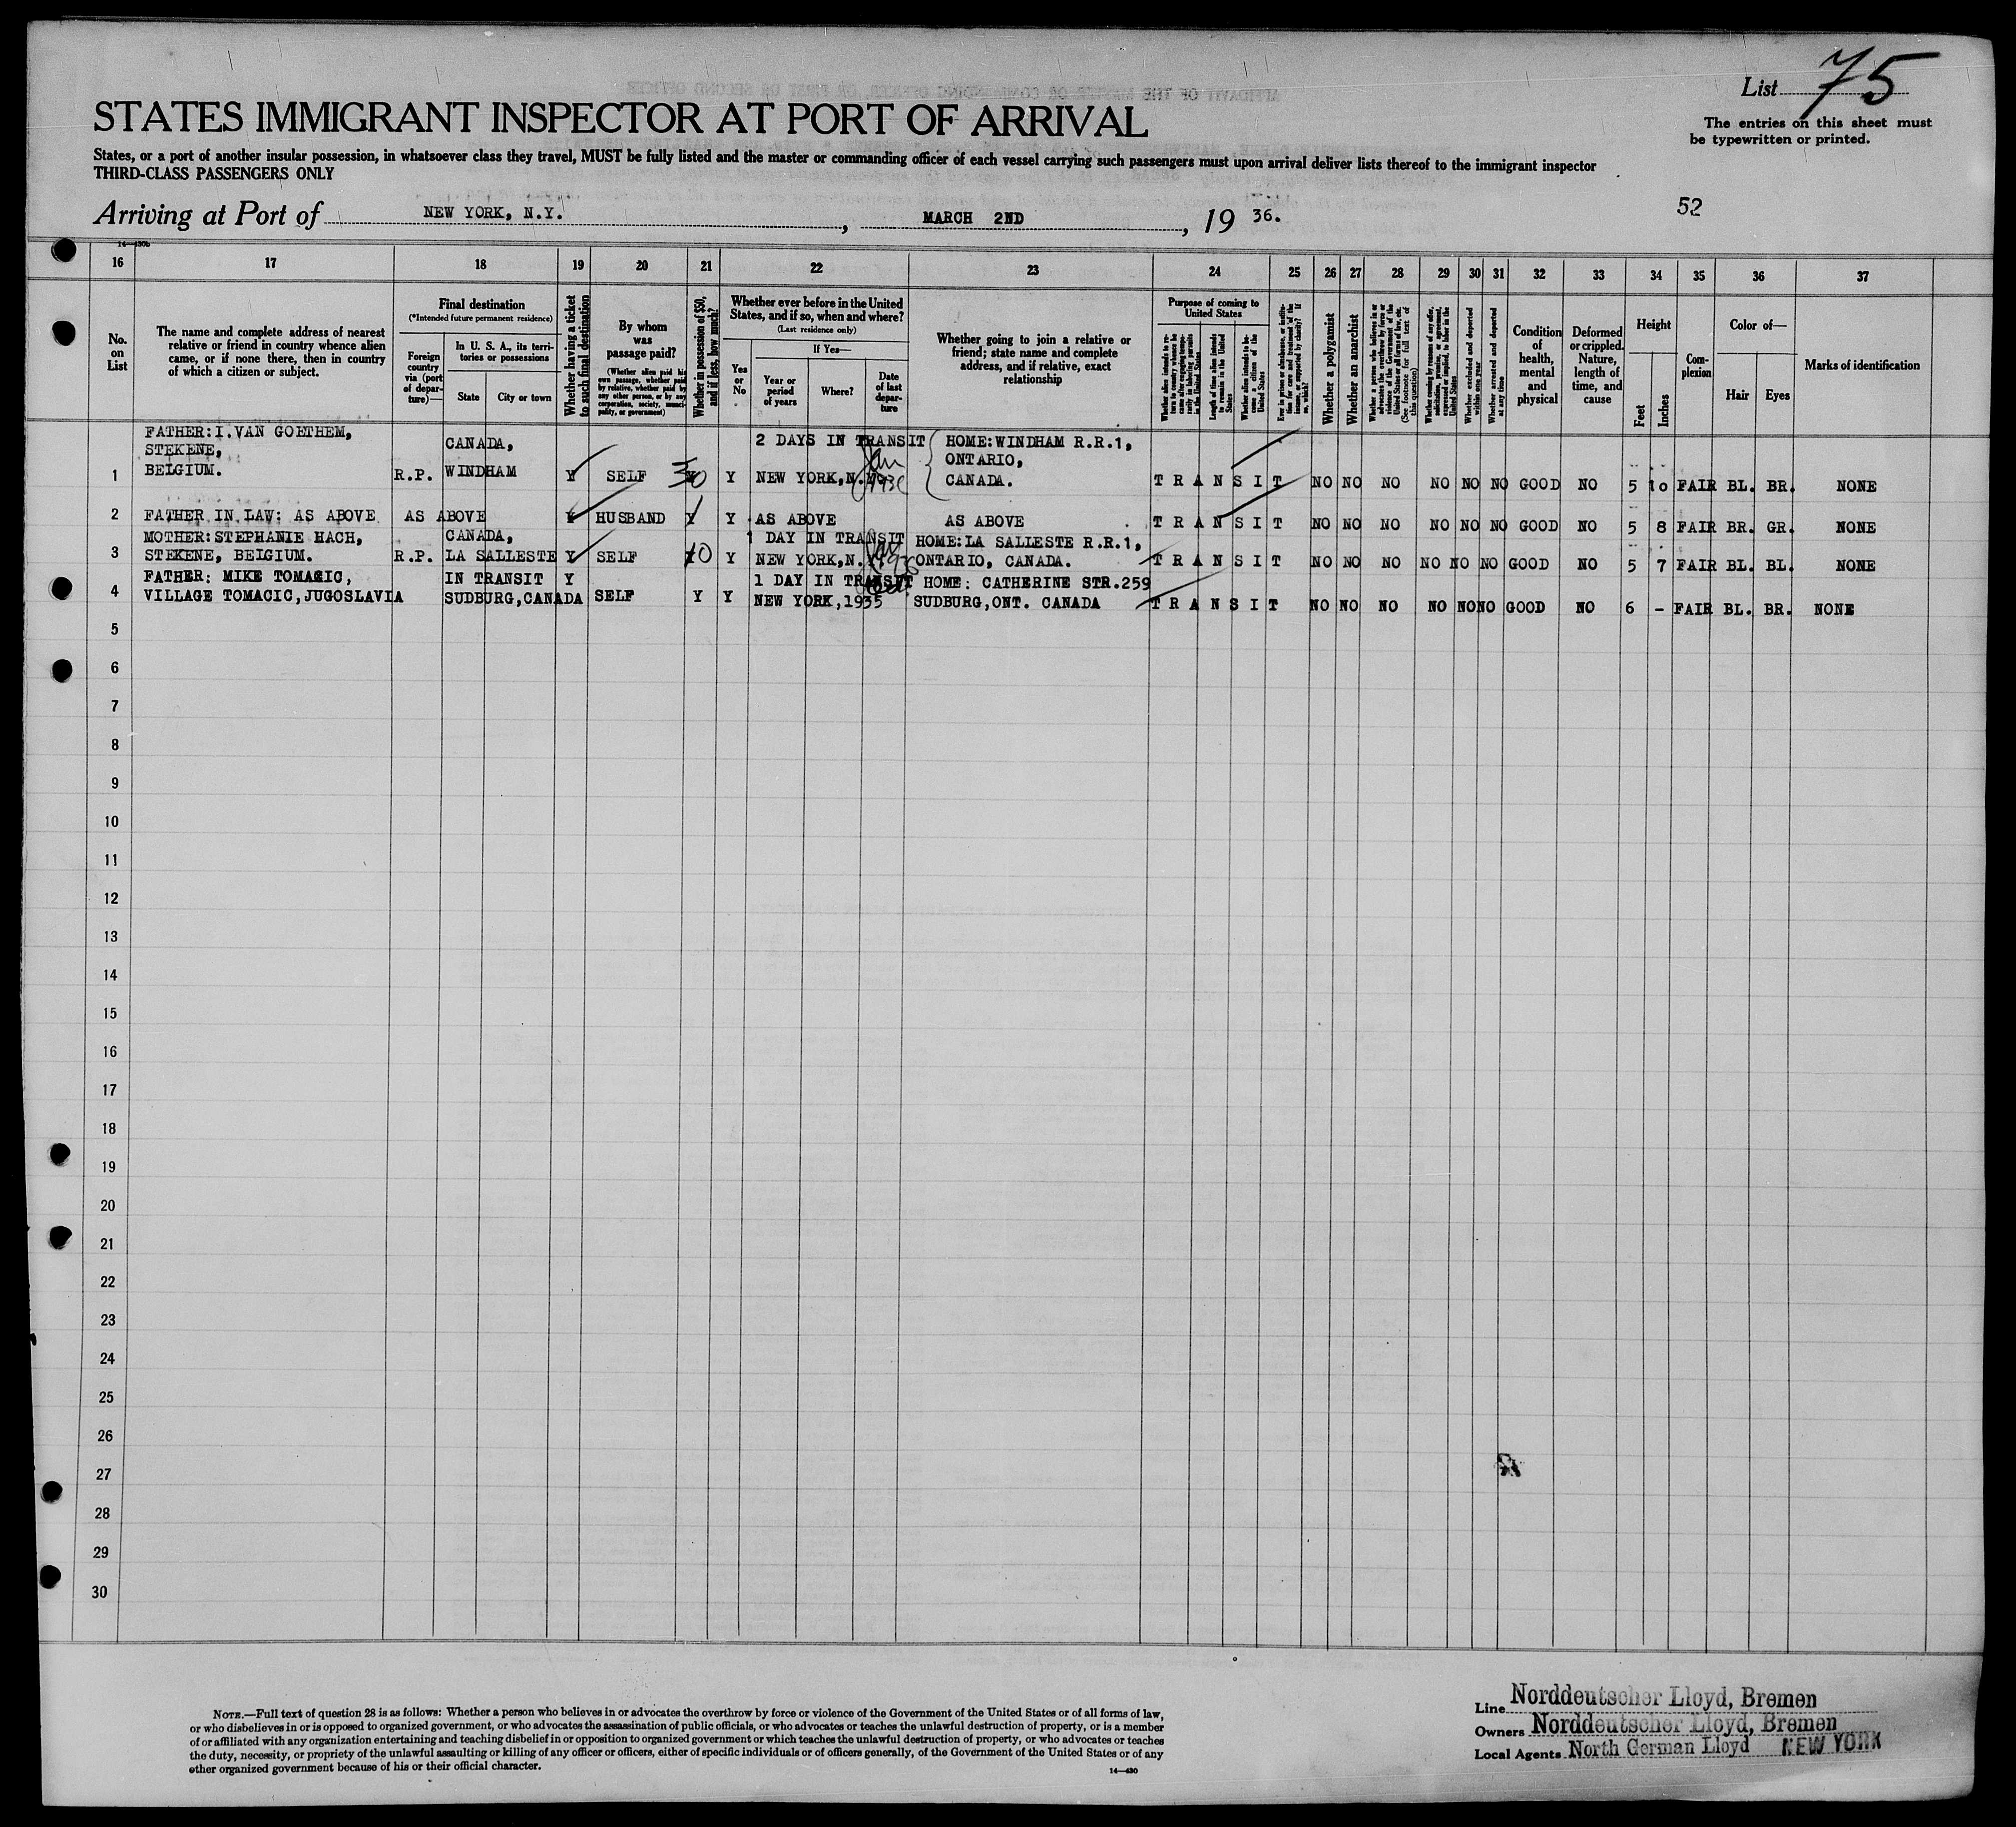 List 75
STATES IMMIGRANT INSPECTOR AT PORT OF ARRIVAL
The entries on this sheet must
be typewritten or printed.
States, or a port of another insular possession, in whatsoever class they travel, MUST be fully listed and the master or commanding officer of each vessel carrying such passengers must upon arrival deliver lists thereof to the immigrant inspector
THIRD-CLASS PASSENGERS ONLY
Arriving at Port of NEW YORK, N.Y. , MARCH 2ND , 19 36.
52
14—430b
16 17 18 19 20 21 22 23 24 25 26 27 28 29 30 31 32 33 34 35 36 37
No.
on
List
The name and complete address of nearest
relative or friend in country whence alien
came, or if none there, then in country
of which a citizen or subject.
Final destination
(*Intended future permanent residence)
Foreign
country
via (port
of depar-
ture)—
In U. S. A., its terri-
tories or possessions
State
City or town
Whether having a ticket
to such final destination
By whom
was
passage paid?
(Whether alien paid his
own passage, whether paid
by relative, whether paid by
any other person, or by any
corporation, society, munici-
pality, or government)
Whether in possession of $50,
and if less, how much?
Whether ever before in the United
States, and if so, when and where?
(Last residence only)
Yes
or
No
If Yes—
Year or
period
of years
Where?
Date
of last
depar-
ture
Whether going to join a relative or
friend; state name and complete
address, and if relative, exact
relationship
Purpose of coming to
United States
Length of time alien intends
to remain in the United
States
Whether alien intends to be-
come a citizen of the
United States
Whether a polygamist
Whether an anarchist
Whether excluded and deported
within one year
Whether arrested and deported
at any time
Condition
of
health,
mental
and
physical
Deformed
or crippled.
Nature,
length of
time, and
cause
Height
Feet
Inches
Com-
plexion
Color of—
Hair
Eyes
Marks of identification
FATHER: I. VAN GOETHEM, CANADA, 2 DAYS IN TRANSIT HOME: WINDHAM R.R.1,
STEKENE, Jan ONTARIO,
1 BELGIUM. R.P. WINDHAM Y SELF 30 Y NEW YORK, N. 1936 CANADA. T R A N S I T NO NO NO NO NO NO GOOD NO 5 10 FAIR BL. BR. NONE
2 FATHER IN LAW: AS ABOVE AS ABOVE Y HUSBAND Y Y AS ABOVE AS ABOVE T R A N S I T NO NO NO NO NO NO GOOD NO 5 8 FAIR BR. GR. NONE
MOTHER: STEPHANIE HACH, CANADA, 1 DAY IN TRANSIT HOME: LA SALLESTE R.R.1,
3 STEKENE, BELGIUM. R.P. LA SALLESTE Y SELF 10 Y NEW YORK, N. Jan 1936 ONTARIO, CANADA. T R A N S I T NO NO NO NO NO NO GOOD NO 5 7 FAIR BL. BL. NONE
FATHER: MIKE TOMASIC, IN TRANSIT Y 1 DAY IN TRANSIT HOME: CATHERINE STR.259
4 VILLAGE TOMACIC, JUGOSLAVIA SUDBURG, CANADA SELF Y Y NEW YORK, 1935 SUDBURG, ONT. CANADA T R A N S I T NO NO NO NO NO NO GOOD NO 6 - FAIR BL. BR. NONE
5
6
7
8
9
10
11
12
13
14
15
16
17
18
19
20
21
22
23
24
25
26
27
28
29
30
NOTE.—Full text of question 28 is as follows: Whether a person who believes in or advocates the overthrow by force or violence of the Government of the United States or of all forms of law,
or who disbelieves in or is opposed to organized government, or who advocates the assassination of public officials, or who advocates or teaches the unlawful destruction of property, or is a member
of or affiliated with any organization entertaining and teaching disbelief in or opposition to organized government or which teaches the unlawful destruction of property, or who advocates or teaches
the duty, necessity, or propriety of the unlawful assaulting or killing of any officer or officers, either of specific individuals or of officers generally, of the Government of the United States or of any
other organized government because of his or their official character.
14—430
Line Norddeutscher Lloyd, Bremen
Owners Norddeutscher Lloyd, Bremen
Local Agents North German Lloyd NEW YORK